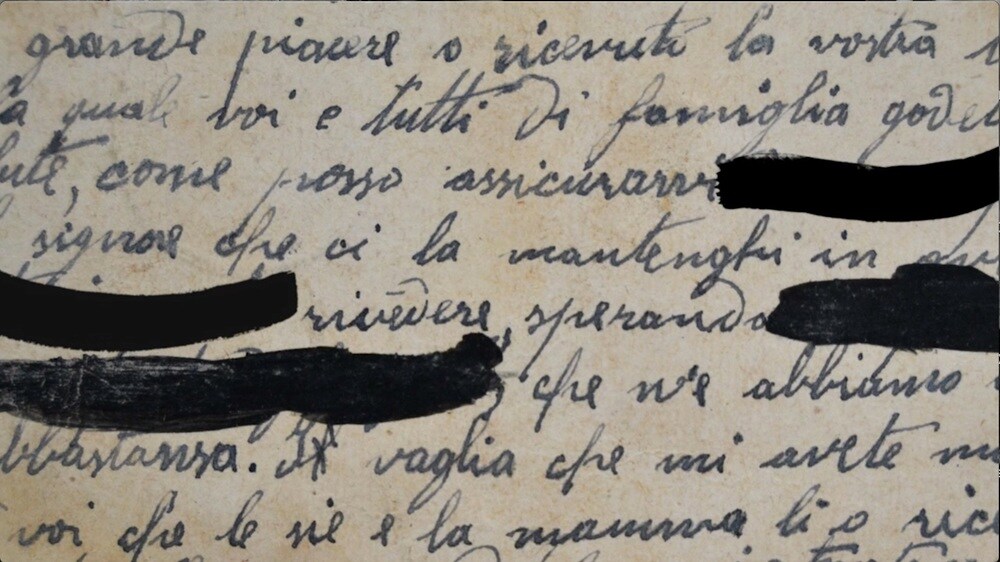 grande piacere o ricevuto la vostra
a quale voi e tutti di famiglia godet
lute, come posso assicurarvi
signore che ci la mantenghi in
rivedere, sperando
che n'e abbiamo
bbastansa. Il vaglia che mi avete m
voi che le sie e la mamma li o rice